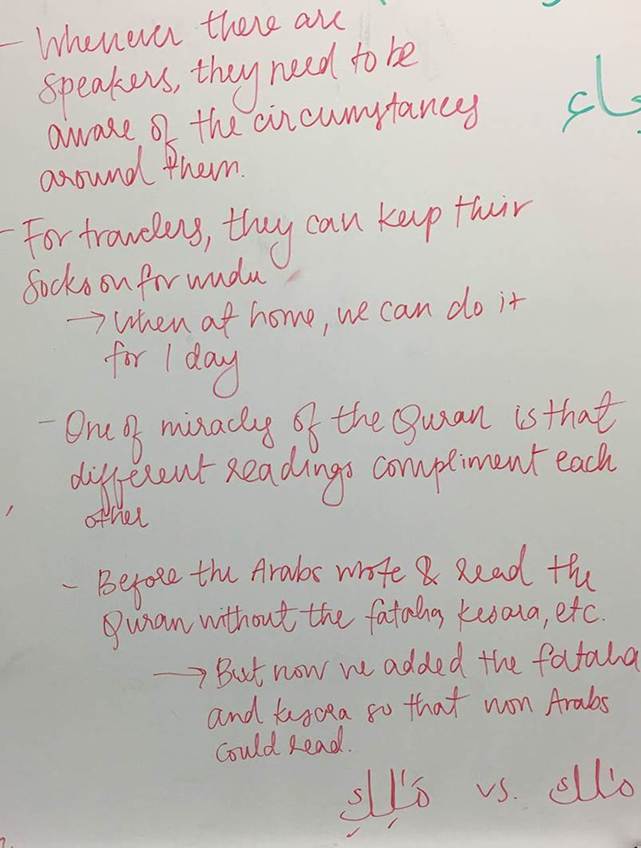 - Whenever there are
speakers, they need to be
aware of the circumstances
around them.
جاء
- For travelers, they can keep their
socks on for wudu
→ When at home, we can do it
for 1 day
- One of miracles of the Quran is that
different readings compliment each
other
- Before the Arabs wrote & read the
Quran without the fataha, kesara, etc.
→ But now we added the fataha
and kesara so that non Arabs
could read.
مَٰلِكِ vs. ملك